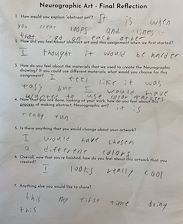 Neurographic Art - Final Reflection
1. How would you explain 'abstract art'? It is when
you create loops and lines
that go on each other
2. How did you feel about abstract art and this assignment when we first started?
I thought it would be harder
3. How do you feel about the materials that we used to create the Neurographic
drawing? If you could use different materials, what would you choose for this
assignment? I feel like it was
easy but I would have
wanted to use color markers
4. Now that you are done, looking at your work, how do you feel about the
process of making abstract Neurographic art? it is
really fun
5. Is there anything that you would change about your artwork?
I would have chosen
a different colors
6. Overall, now that you're finished, how do you feel about this artwork that you
created? I looks really cool
7. Anything else you would like to share?
this my first time doing
this